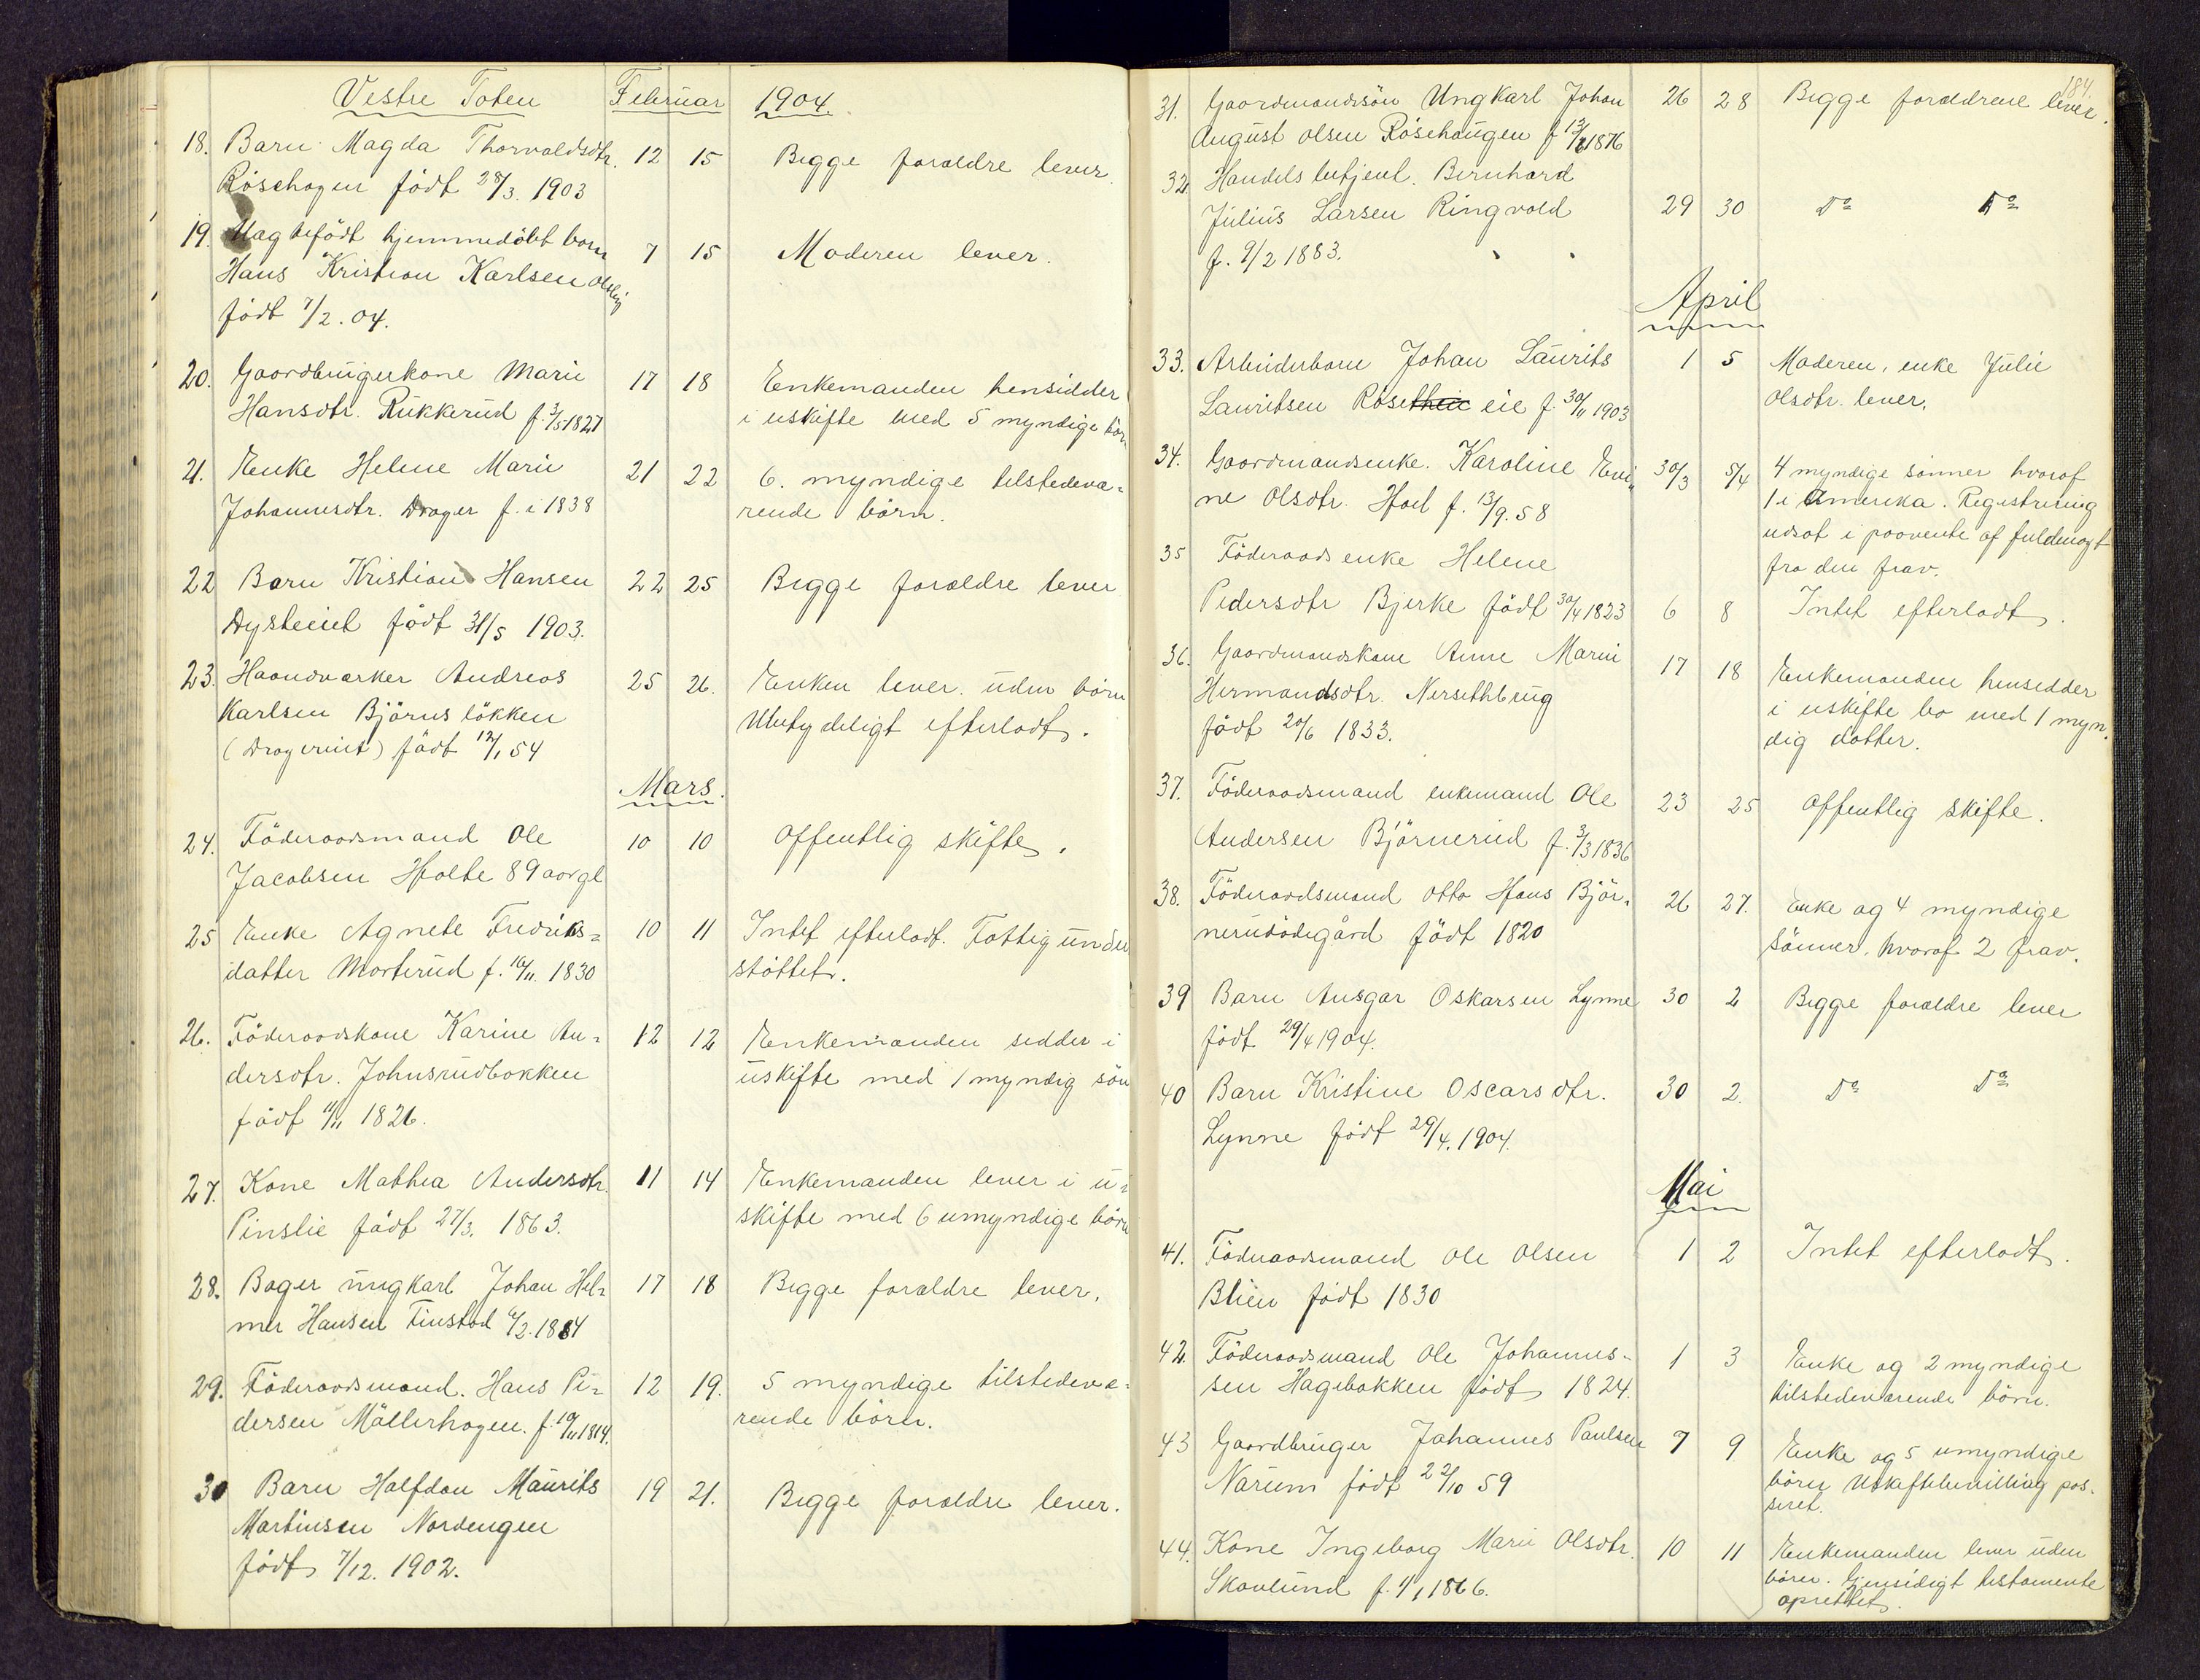 Vestre Toten Februar 1904.
18. Barn Magda Thorvaldsdtr. 12 15 Begge forældre lever.
Röschagen födt 28/3. 1903
19. Uægtefödt hjemmedöbt barn 7 15 Moderen lever.
Hans Kristian Karlsen
födt 7/2. 04.
20. Gaardbrugerkone Marie 17 18 Enkemanden hensidder
Hansdtr. Rukkerud f. 3/5 1827 i uskifte med 5 myndige börn
21. Enke Helene Marie 21 22 6. myndige tilstedevæ-
Johannesdtr. Drager f. i 1838 rende börn.
22 Barn Kristian Hansen 22 25 Begge forældre lever
Dysteeiet födt 31/5 1903.
23. Haandværker Andreas 25 26. Enken lever. uden börn
Karlsen Björnslökken Ubetydeligt efterladt.
(Dragereiet) födt 12/1 54
Mars.
24. Föderaadsmand Ole 10 10 Offentlig skifte.
Jacobsen Holte 89 aargl
25 Enke Agnete Fredriks- 10 11 Intet efterladt. Fattigunder
datter Morterud f. 16/11. 1830 støttet.
26. Föderaadskone Karine An- 12 12 Enkemanden sedder i
dersdtr. Johnsrudbakken uskifte med 1 myndig sön
födt 11/11 1826.
27. Kone Mathea Andersdtr. 11 14 Enkemanden lever i u-
Pinslie födt 27/3. 1863. skifte med 6 umyndige börn
28. Bager ungkarl Johan Hel- 17 18 Begge forældre lever.
mer Hansen Finstad 6/2. 1884
29. Föderaadsmand. Hans Pe- 12 19. 5 myndige tilstedevæ-
dersen Möllerhagen. f. 19/11 1814. rende börn.
30 Barn Halfdan Maurits 19 21. Begge forældre lever.
Martinsen Nordengen
födt 7/12. 1902.
184.
31. Gaardmandssön Ungkarl Johan 26 28 Begge forældrene lever.
August Olsen Röschaugen f 13/8 1876
32. Handelsbetjent. Bernhard
Julius Larsen Ringvold 29 30 Do Do
f. 9/2 1883.
April
33. Arbeiderbarn Johan Laurits 1 5 Moderen, enke Julie
Lauritsen Röse eie f. 30/11 1903 Olsdtr. lever.
34. Gaardmandsenke. Karoline Eve- 30/3 5/4 4 myndige sönner hvoraf
ne Olsdtr. Hoel f. 13/9. 58 1 i Amerika. Registrering
udsat i paavente af fuldmagt
fra den frav.
35 Föderaadsenke Helene
Pedersdtr Bjerke födt 30/4 1823 6 8 Intet efterladt.
36. Gaardmandskone Anne Marie 17 18 Enkemanden hensedder
Hermandsdtr. Nersethbrug i uskifte bo med 1 myn-
födt 20/6 1833. dig datter.
37. Föderaadsmand enkemand Ole 23 25 Offentlig skifte.
Andersen Björnerud f. 3/3 1836
38. Föderaadsmand Otto Hans Björ- 26 27. Enke og 4 myndige
nerudödegård födt 1820 sönner, hvoraf 2 frav.
39 Barn Ansgar Oskarsen Lynne 30 2 Begge forældre lever
födt 29/4 1904.
40 Barn Kristine Oscarsdtr. 30 2. Do Do
Lynne födt 29/4. 1904.
Mai
41. Föderaadsmand Ole Olsen 1 2 Intet efterladt.
Blien födt 1830
42. Föderaadsmand Ole Johannes- 1 3 Enke og 2 myndige
sen Hagebakken födt 1824. tilstedeværende börn.
43 Gaardbruger Johannes Paulsen 7 9 Enke og 5 umyndige
Narum födt 22/10 59 börn Uskiftebevilling pas-
seret.
44. Kone Ingeborg Marie Olsdtr. 10 11 Enkemanden lever uden
Skovlund f. 1/1 1866. börn. Gjensidigt testamente
oprettet.